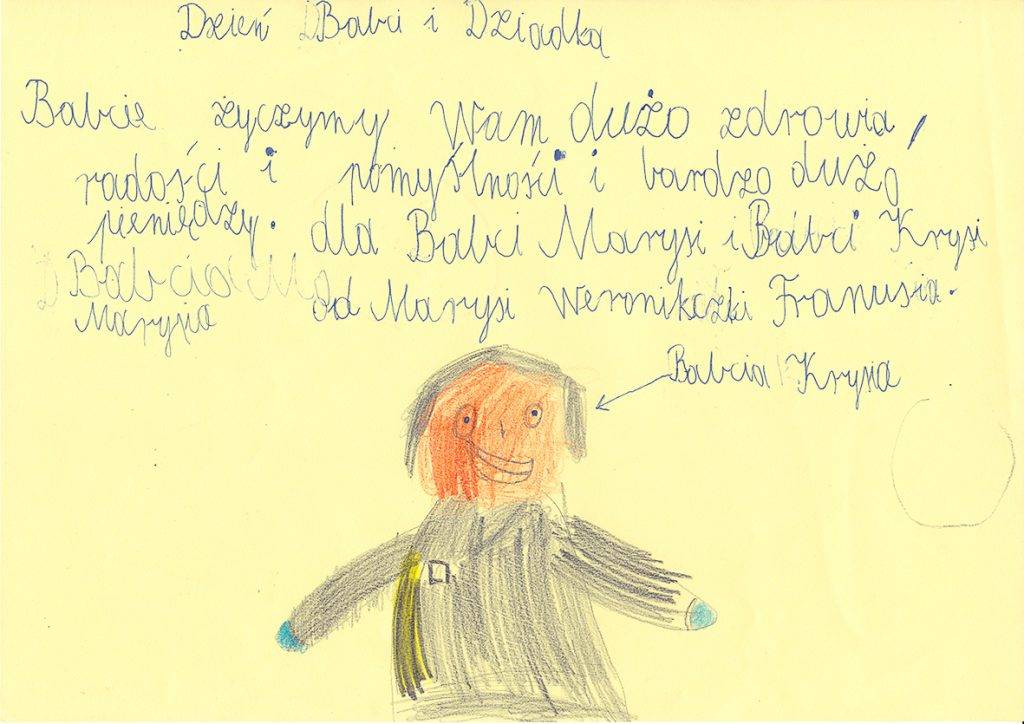 Dzień Babci i Dziadka
Babcie życzymy Wam dużo zdrowia,
radości i pomyślności i bardzo dużo
pieniędzy. dla Babci Marysi i Babci Krysi
Babcia Ma
Marysia
od Marysi Weronikczki Franusia.
Babcia Krysia